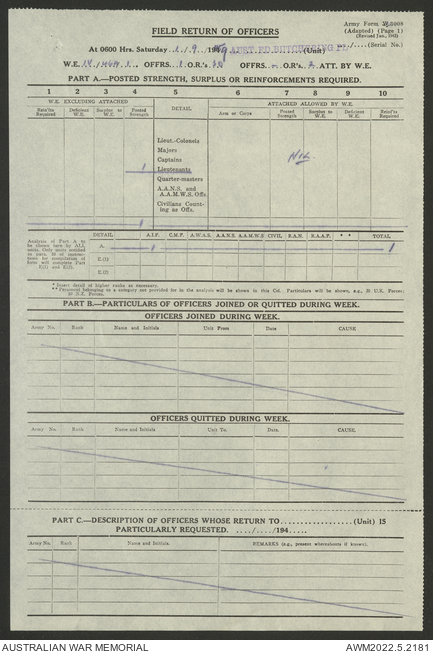 Army Form W.3008
(Adapted) (Page 1)
(Revised Jan., 1943)
FIELD RETURN OF OFFICERS
At 0600 Hrs. Saturday 1/9/194 (Unit) ..../.... (Serial No.)
W.E. OFFRS. 1 O.R's. OFFRS. – O.R's. 2 ATT. BY W.E.
PART A.—POSTED STRENGTH, SURPLUS OR REINFORCEMENTS REQUIRED.
1 2 3 4 5 6 7 8 9 10
W.E. EXCLUDING ATTACHED DETAIL ATTACHED ALLOWED BY W.E.
Rein'ts Required Deficient W.E. Surplus to W.E. Posted Strength Arm or Corps Posted Strength Surplus to W.E. Deficient W.E. Rein'ts Required
Lieut.-Colonels
Majors
Captains NIL
1 Lieutenants
Quarter-masters
A.A.N.S. and
A.A.M.W.S. Offs.
Civilians Count-
ing as Offs.
1
Analysis of Part A to be shown here by ALL units. Only units entitled
DETAIL A.I.F. C.M.F. A.W.A.S. A.A.N.S. A.A.M.W.S. CIVIL R.A.N. R.A.A.F. * * TOTAL
A. 1 1
E.(1)
E.(2)
* Insert detail of higher ranks as necessary.
** Personnel belonging to a category not provided for in the analysis will be shown in this Col. Particulars will be shown, e.g., U.K. Forces
or N.Z. Forces.
PART B.—PARTICULARS OF OFFICERS JOINED OR QUITTED DURING WEEK.
OFFICERS JOINED DURING WEEK.
Army No. Rank Name and Initials Unit From Date CAUSE
OFFICERS QUITTED DURING WEEK.
Army No. Rank Name and Initials Unit To. Date. CAUSE.
PART C.—DESCRIPTION OF OFFICERS WHOSE RETURN TO.................. (Unit) IS
PARTICULARLY REQUESTED. ..../..../194.....
Army No. Rank Name and Initials. REMARKS (e.g., present whereabouts if known).
AUSTRALIAN WAR MEMORIAL AWM2022.5.2181